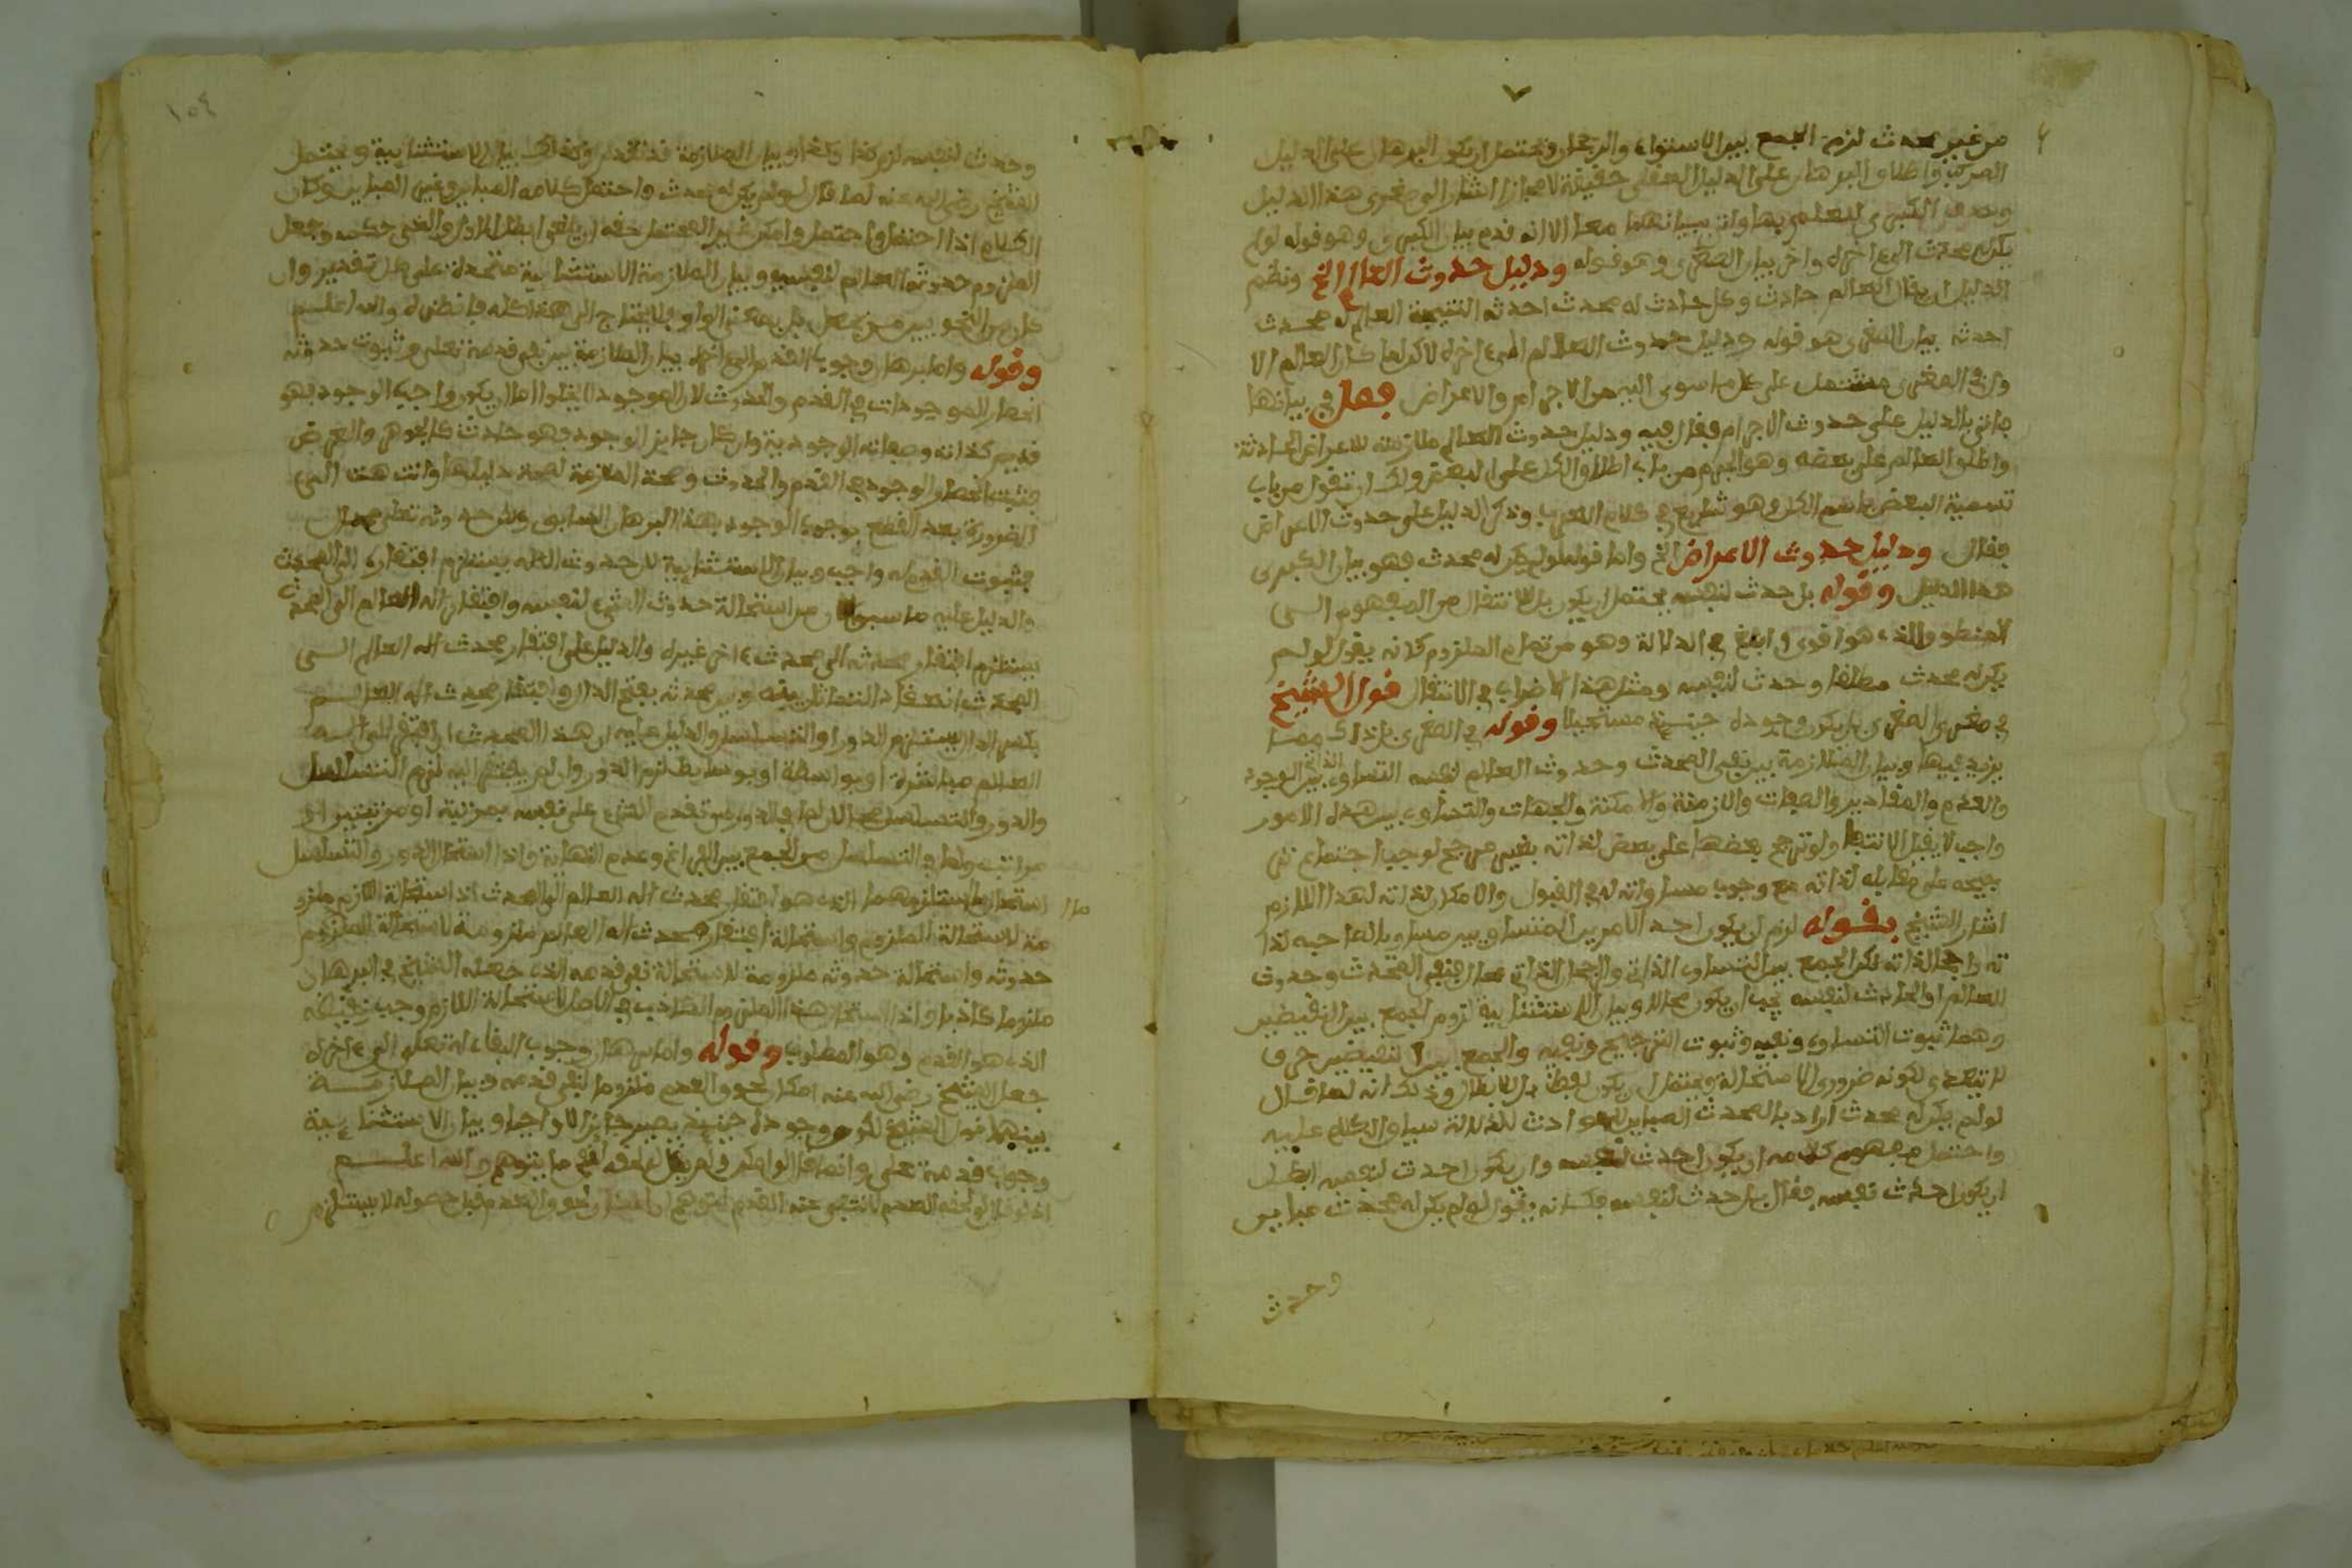 من غير محدث لزم الجمع بين الاستواء والرجحان ويحتمل ان يكون البرهان على الدليل
المركب واطلاق البرهان على الدليل العقلي حقيقة لا مجازا اشار الى صغرى هذا الدليل
وحذف الكبرى للعلم بها واتى ببيانهما معا الا انه قدم بيان الكبرى وهو قوله لو لم
يكن له محدث الى اخره واخر بيان الصغرى وهو قوله ودليل حدوث العالم الخ ونظم
الدليل ان يقال العالم حادث وكل حادث له محدث احدثه النتيجة العالم له محدث
احدثه بيان الصغرى هو قوله ودليل حدوث العالم الى اخره لاكن لما كان العالم الا
في الصغرى مشتمل على كل ما سوى الله من الاجرام والاعراض فصل في بيانها
فاتى بالدليل على حدوث الاجرام فقال فيه ودليل حدوث العالم ملازمته للاعراض الحادثة
واطلق العالم على بعضه وهو الجرم من باب اطلاق الكل على البعض ولك ان تقول من باب
تسمية البعض باسم الكل وهو شايع في كلام العرب وذكر الدليل على حدوث الاعراض
فقال ودليل حدوث الاعراض الخ واما قوله لو لم يكن له محدث فهو بيان الكبرى
هذا الدليل وقوله بل حدث لنفسه يحتمل ان يكون بل للانتقال من المفهوم الى
المنطوق الذي هو اقوى وابلغ في الدلالة وهو من تمام الملزوم كانه يقول لو لم
يكن له محدث مطلقا وحدث لنفسه ومثل هذا الاضراب في الانتقال قول الشيخ
في صغرى الصغرى بل يكون وجوده حينئذ مستحيلا وقوله في الصغرى بل ذاك مما
يزيد فيها وبيان الملازمة بين نفي المحدث وحدوث العالم لنفسه التساوي الذاتي بين الوجود
والعدم والمقادير والصفات والازمنة والامكنة والجهات والتساوي بين هذه الامور
واجب لا يقبل الانتفا ولو ترجح بعضها على بعض لذاته بغير مرجح لوجب اجتماع تر
جيحه على مقابله لذاته مع وجوب مساواته له في القبول والامكان لذاته لهذا اللازم
اشار الشيخ بقوله لزم ان يكون احد الامرين المتساويين مساويا لصاحبه لذا
ته راجحا لذاته لكن الجمع بين التساوي الذاتي والرجحان الذاتي محال فنفي المحدث وحدوث
العالم او الحادث لنفسه يجب ان يكون محالا وبيان الاستثنائية لزوم الجمع بين النقيضين
وهما ثبوت التساوي ونفيه وثبوت الترجيح ونفيه والجمع بين النقيضين حرف
لا يتعدى لكونه ضروري الاستحالة ويحتمل ان يكون لفظ بل للابطال وذلك انه لما قال
لو لم يكن له محدث اراد بالمحدث المباين للحوادث لدلالة سياق الكلام عليه
واحتمل مفهوم كلامه ان يكون احدث نفسه وان يكون احدث لنفسه ابطل
ان يكون احدث نفسه فقال بل حدث لنفسه فكانه يقول لو لم يكن له محدث مباين
وحدث
١٥٤
وحدث لنفسه لزم كذا وكذا وبيان الملازمة قد تقدم وكذلك بيان الاستثنائية ويحتمل
الشيخ رضي الله عنه لما قال لو لم يكن له محدث واحتمل كلامه المباين وغير المباين وكان
العالم حدوث العالم لنفسه وبيان الملازمة الاستثنائية متحدة على كل تقدير وان
كان من النحويين من يجعل بل بمعنى الواو فلا يحتاج الى هذا كله فانظره والله اعلم
وقوله واما برهان وجوب القدم الى اخره بيان الملازمة بين نفي قدمه تعالى وثبوت حدوثه
انحصار الموجودات في القدم والحدوث لان الموجود لا يخلوا اما ان يكون واجب الوجود فهو
قديم كذاته وصفاته الوجودية وان كان جايز الوجود فهو حادث كالجوهر والعرض
الضرورة بعد القطع بوجوب الوجود بهذا البرهان السابق
فثبوت القدم له واجب وبيان الاستثنائية لان حدوث الاله يستلزم افتقاره الى المحدث
والدليل عليه ما سبق من استحالة حدوث الشيء لنفسه وافتقار اله العالم الى المحدث
يستلزم افتقار محدثه الى محدث اخر غيره والدليل على افتقار محدث اله العالم الى
المحدث انعقاد التماثل بينه وبين محدثه بفتح الدال وافتقار محدث اله العالم
بكسر الدال يستلزم الدور او التسلسل والدليل عليه ان هذا المحدث ان افتقر الى اله
العالم مباشرة او بواسطة او بوسايط لزم الدور وان لم يفتقر اليه لزم التسلسل
والدور والتسلسل محالان لما في الدور من تقدم الشيء على نفسه بمرتبة او مرتبتين او
مراتب ولما في التسلسل من الجمع بين الفراغ وعدم النهاية واذا استحال الدور والتسلسل
استحال ملزومهما الذي هو افتقار محدث اله العالم الى المحدث اذ استحالة اللازم ملزو
مة لاستحالة الملزوم واستحالة افتقار محدث اله العالم ملزومة لاستحالة الملزوم
حدوثه واستحالة حدوثه ملزومة لاستحالة نفي قدمه الذي جعله الشيخ في البرهان
ملزوما كاذبا واذا استحال هذا الملزوم الكاذب في الاصل لاستحالة اللازم وجب نقيضه
الذي هو القدم وهو المطلوب وقوله واما برهان وجوب البقاء له تعالى الى اخره
جعل الشيخ رضي الله عنه امكان لحوق العدم ملزوما لنفي قدمه وبيان الملازمة
بينهما قول الشيخ لكون وجوده حينئذ يصير جايزا لا واجبا وبيان الاستثنائية
وجوب قدمه تعالى والله اعلم